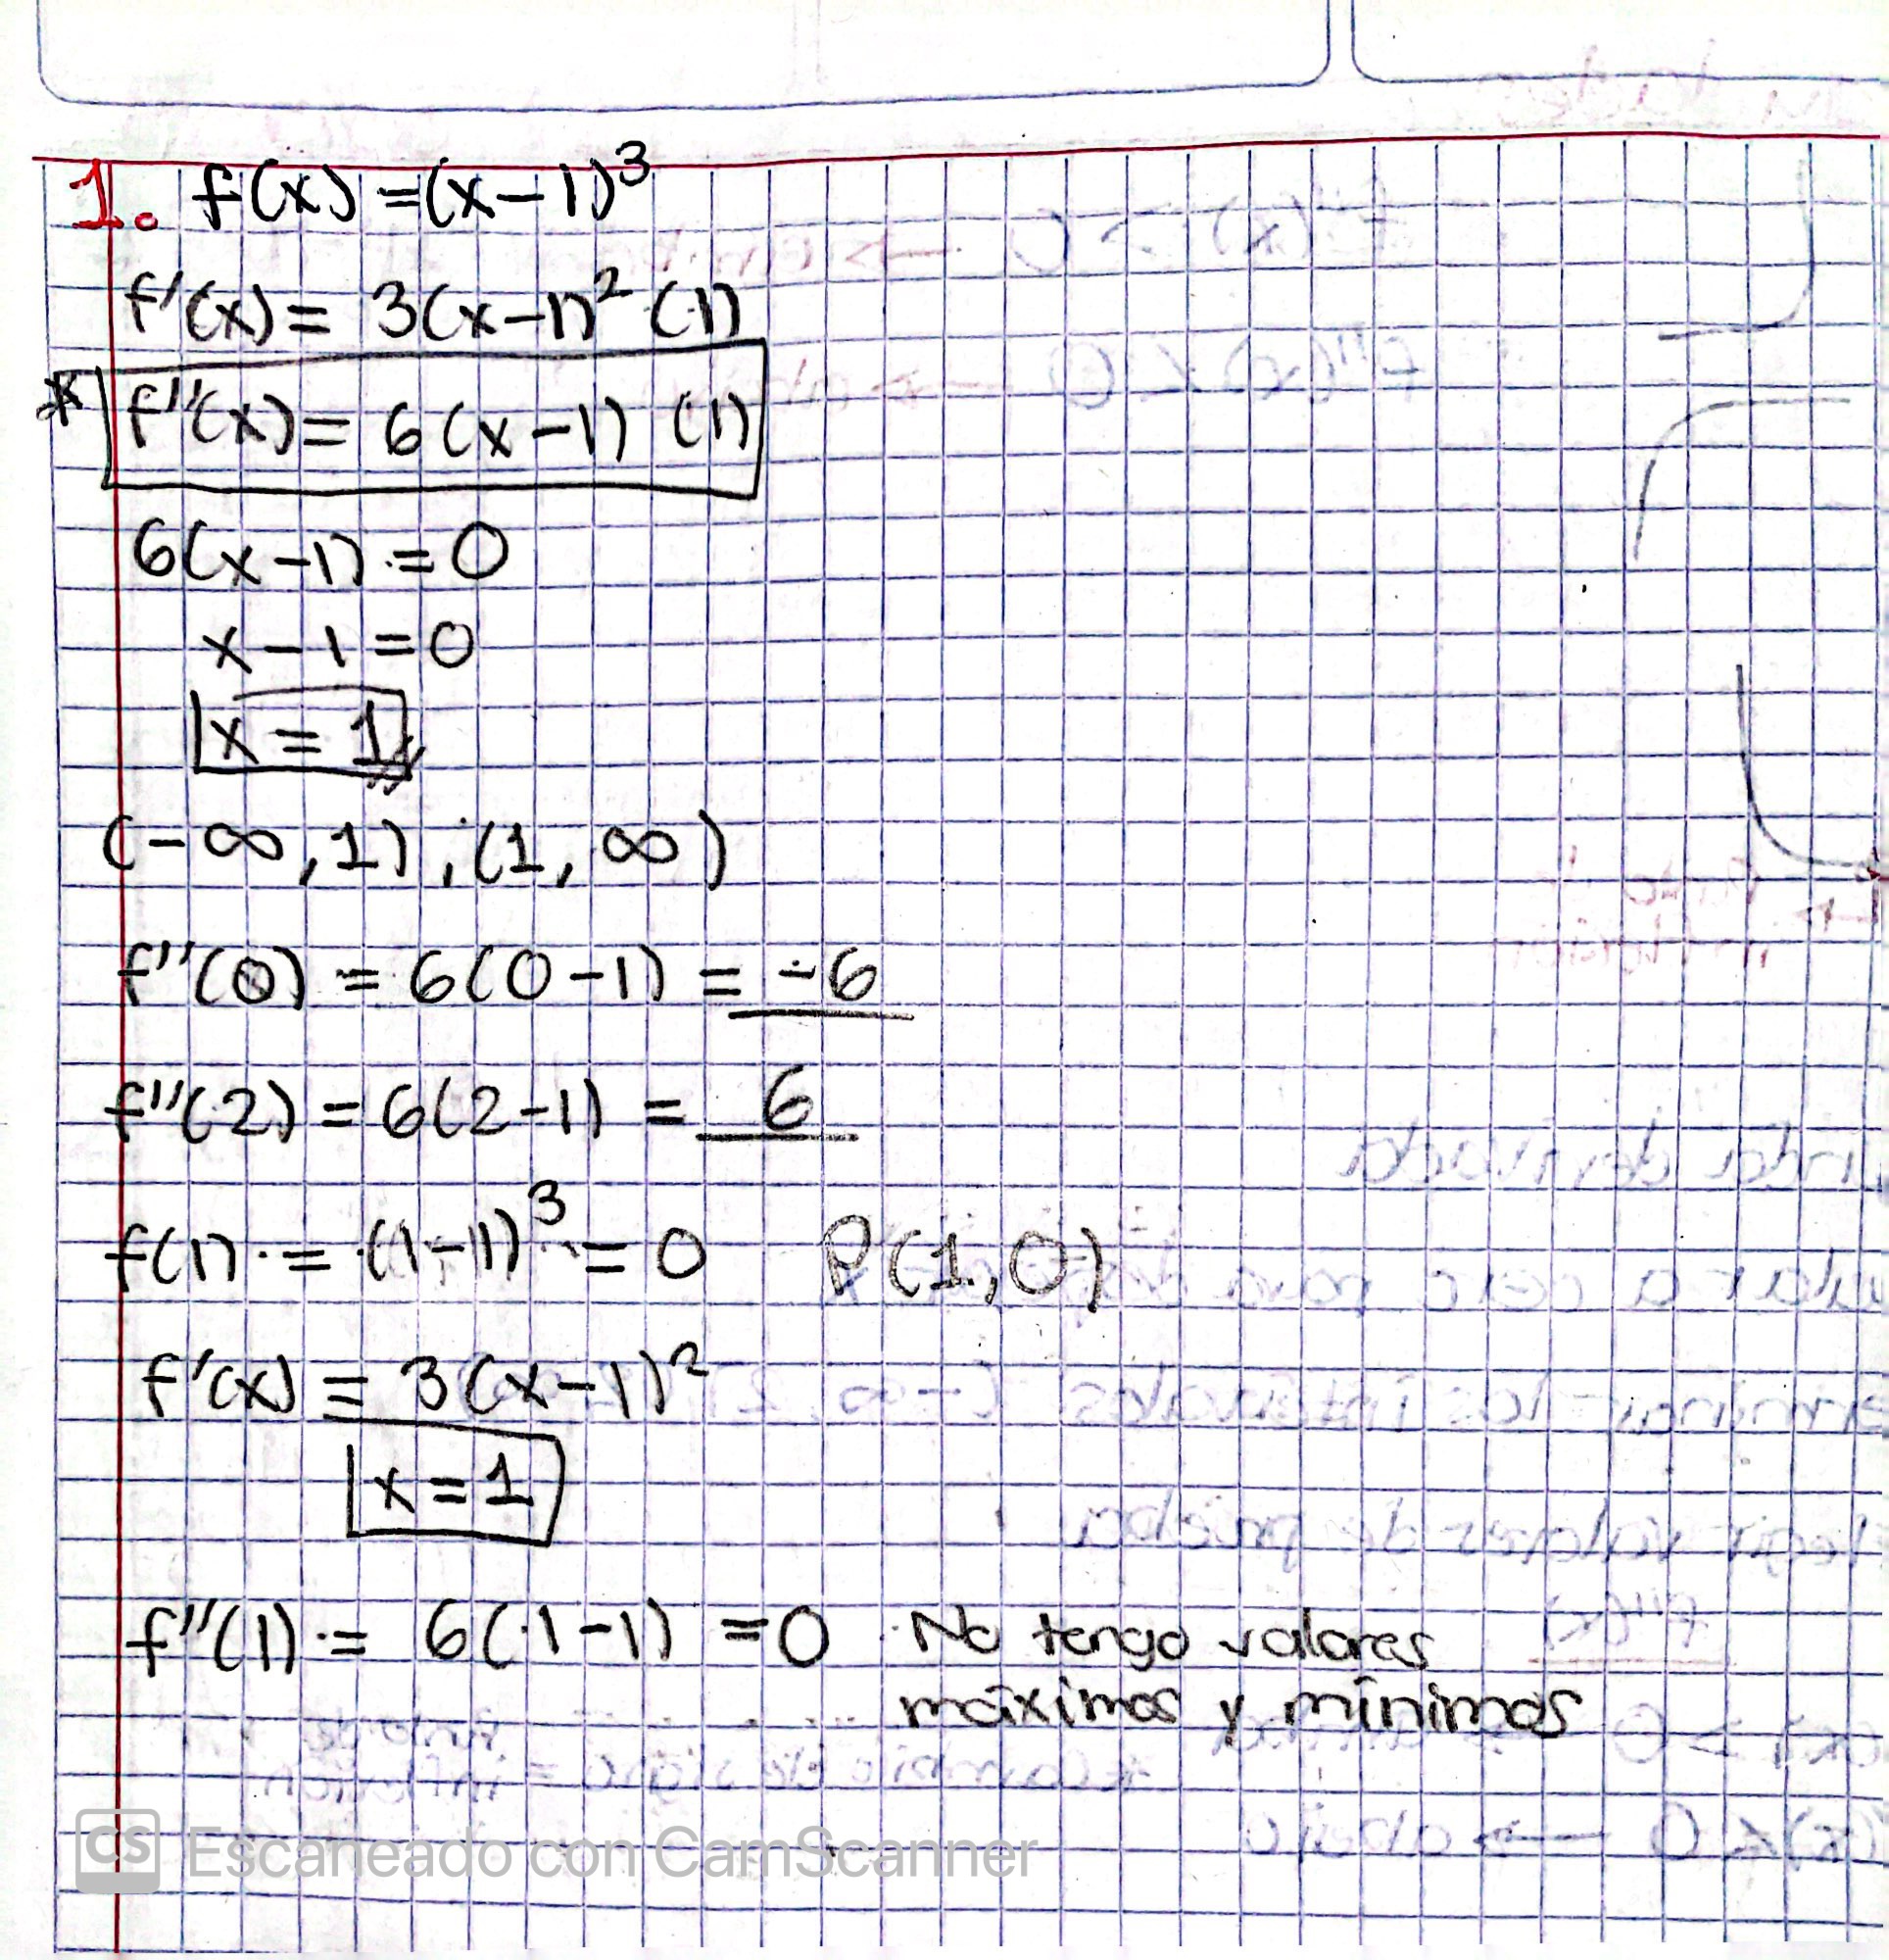 1. f(x) = (x-1)³
f'(x) = 3(x-1)² (1)
* f''(x) = 6(x-1) (1)
6(x-1) = 0
x-1 = 0
x = 1
(-∞, 1), (1, ∞)
f''(0) = 6(0-1) = -6
f''(2) = 6(2-1) = 6
f(1) = (1-1)³ = 0 P(1,0)
f'(x) = 3(x-1)²
x = 1
f''(1) = 6(1-1) = 0 No tengo valores
máximos y mínimos
CS Escaneado con CamScanner